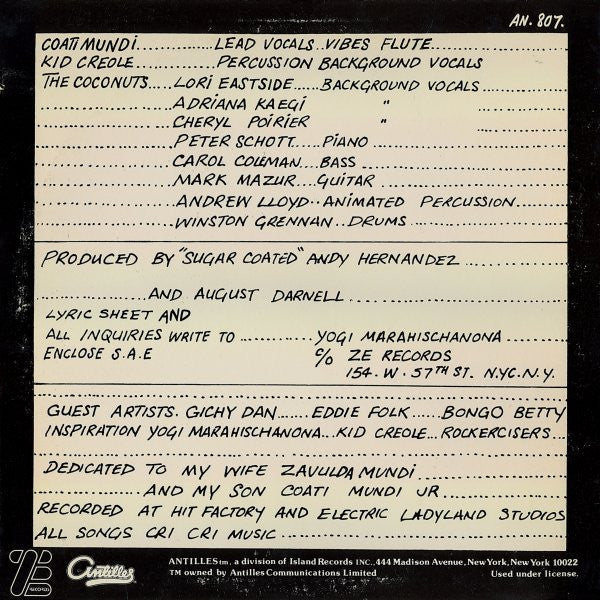 AN. 807.
COATI MUNDI..............LEAD VOCALS..VIBES FLUTE...................
KID CREOLE...............PERCUSSION BACKGROUND VOCALS
THE COCONUTS.....LORI EASTSIDE.....BACKGROUND VOCALS......
ADRIANA KAEGI "
CHERYL POIRIER "
PETER SCHOTT....PIANO
CAROL COLEMAN...BASS
MARK MAZUR...GUITAR
ANDREW LLOYD..ANIMATED PERCUSSION
WINSTON GRENNAN..DRUMS
PRODUCED BY "SUGAR COATED" ANDY HERNANDEZ
AND AUGUST DARNELL
LYRIC SHEET AND
ALL INQUIRIES WRITE TO ............. YOGI MARAHISCHANONA
ENCLOSE S.A.E C/O ZE RECORDS
154. W. 57TH ST. N.Y.C. N.Y.
GUEST ARTISTS. GICHY DAN......EDDIE FOLK......BONGO BETTY
INSPIRATION YOGI MARAHISCHANONA...KID CREOLE...ROCKERCISERS...
DEDICATED TO MY WIFE ZAVULDA MUNDI
AND MY SON COATI MUNDI JR
RECORDED AT HIT FACTORY AND ELECTRIC LADYLAND STUDIOS
ALL SONGS CRI CRI MUSIC
ZE RECORDS
Antilles
ANTILLES tm. a division of Island Records INC., 444 Madison Avenue, New York, New York 10022
TM owned by Antilles Communications Limited Used under license.